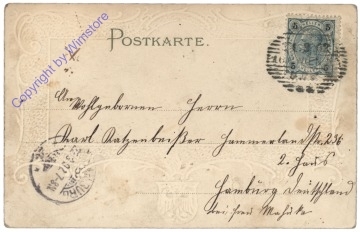 Copyright by Wimstore
POSTKARTE.
5 5
An Wohlgebornen Herrn
Karl Katzenbeißer Hammerlandstr. 236
2. Haus
Hamburg Deutschland
bei Frau